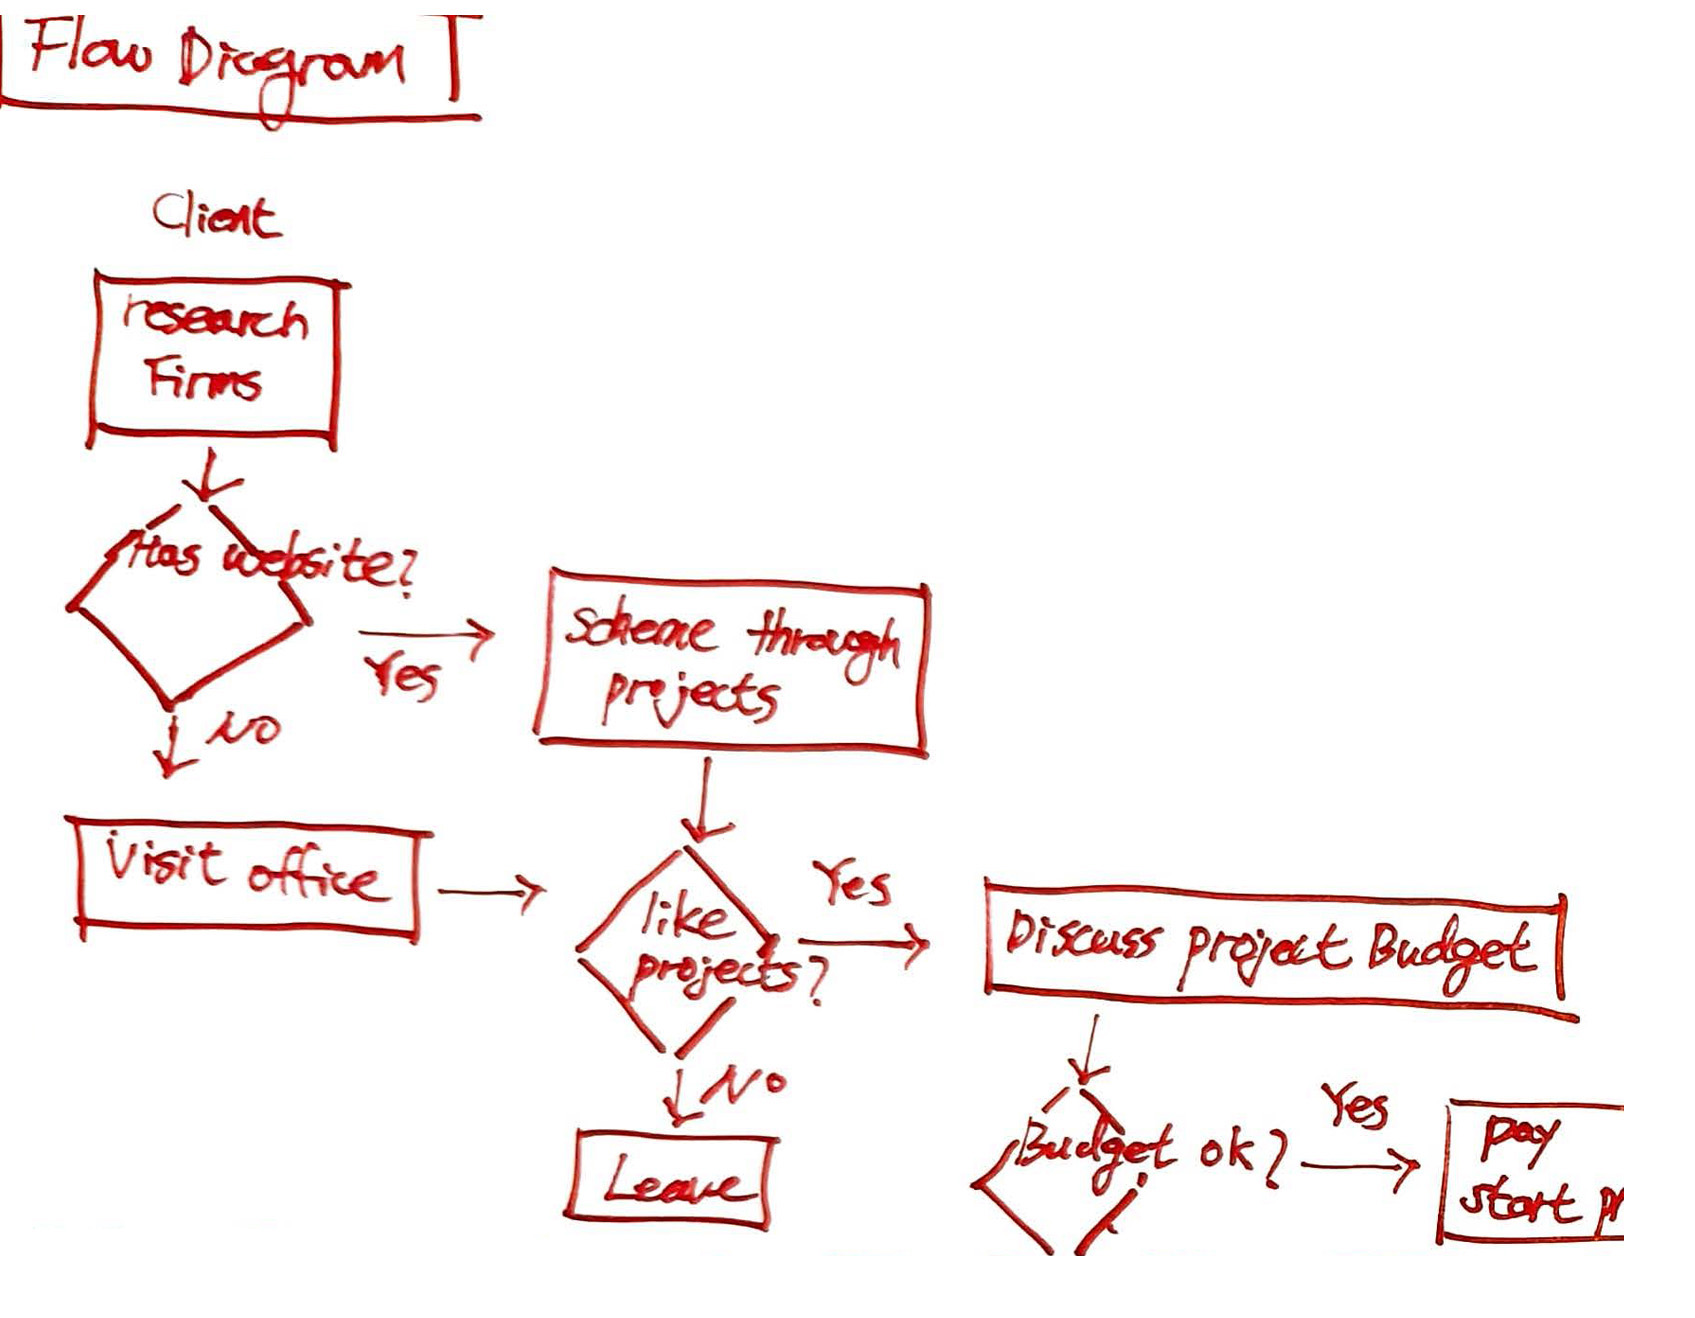 Flow Diagram
Client
research
Firms
Has website?
Yes
No
scheme through
projects
Visit office
like
projects?
Yes
No
Leave
Discuss project Budget
Budget ok?
Yes
pay
start